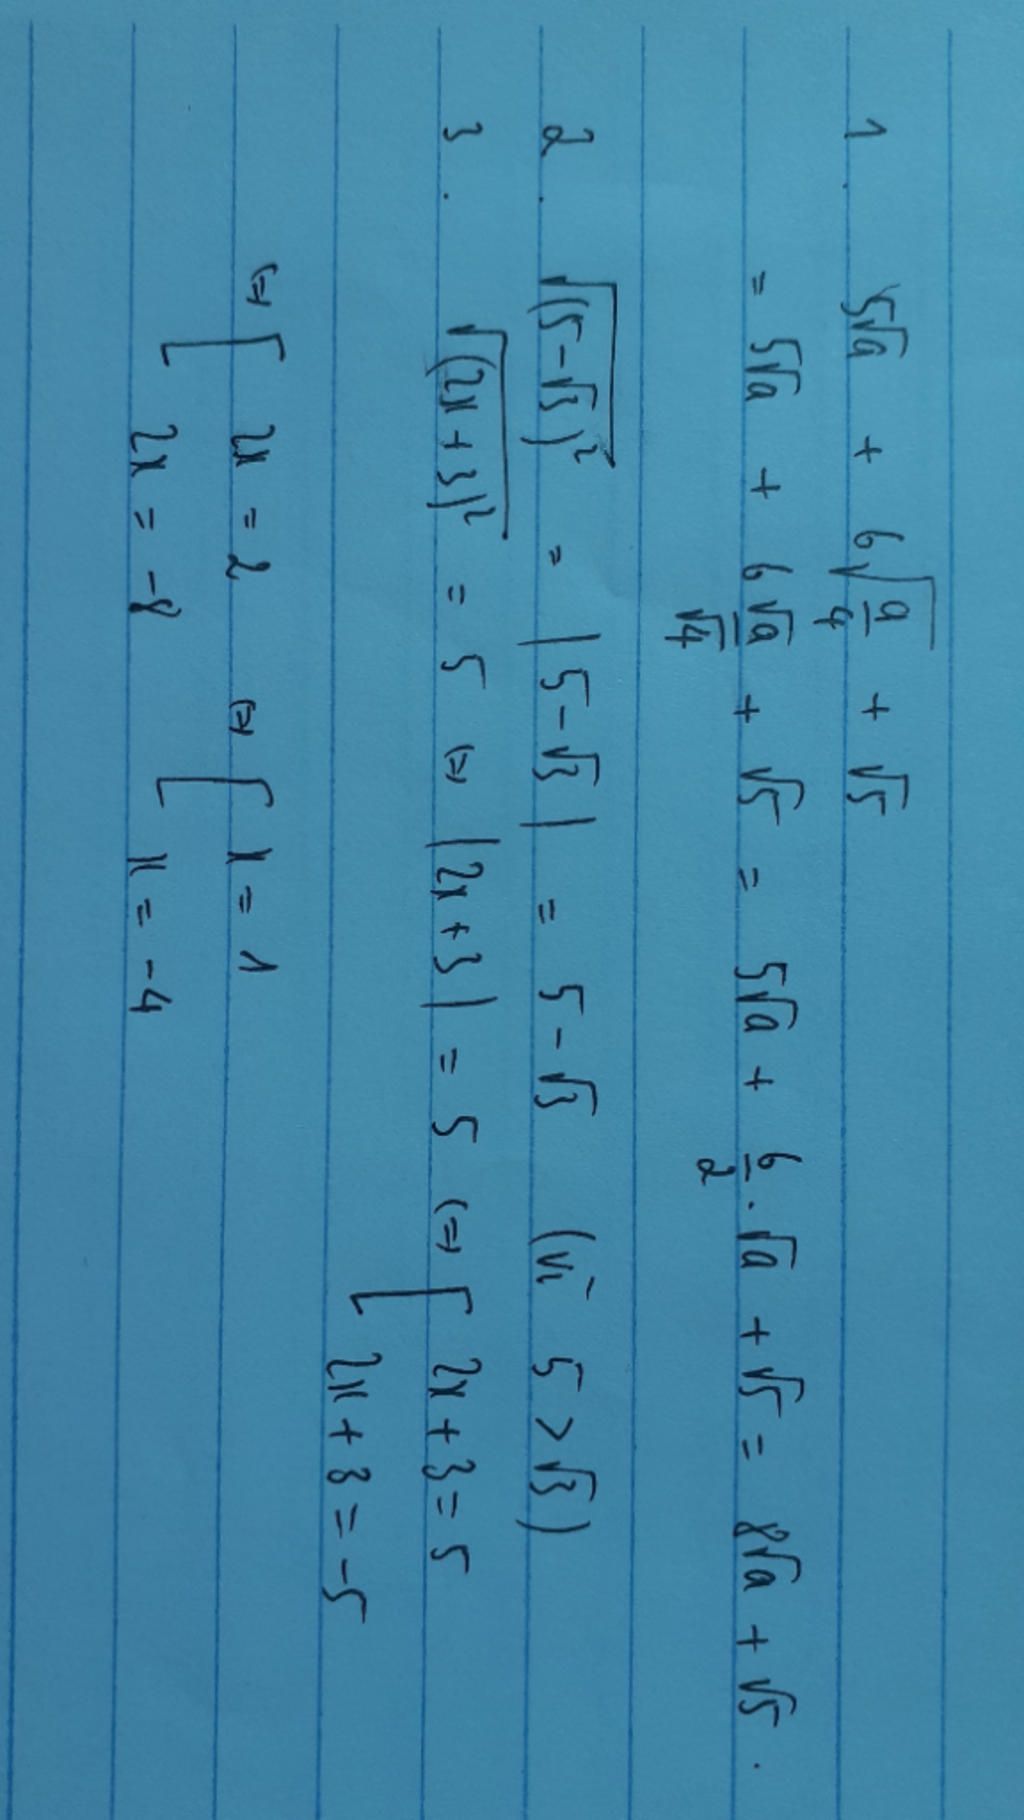 1. 5√a + 6√(a/4) + √5
= 5√a + 6 √a/√4 + √5 = 5√a + 6/2 . √a + √5 = 8√a + √5 .
2. √((5-√3)²) = |5-√3| = 5-√3 (vì 5 > √3)
3. √((2x+3)²) = 5 (=) |2x+3| = 5 (=) [ 2x+3 = 5
2x+3 = -5
(=) [ 2x = 2 (=) [ x = 1
2x = -8 x = -4